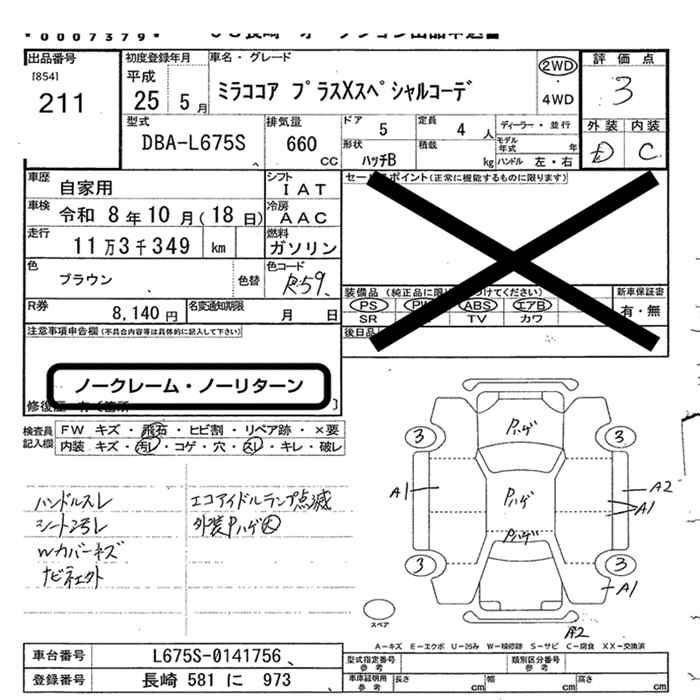 *0007379*
出品番号 初度登録年月 車名・グレード 評価点
[854] 平成 2WD
211 25 5月 ミラココア プラスXスペシャルコーデ 4WD 3
型式 排気量 ドア 5 定員 4人 ディーラー・並行 外装 内装
DBA-L675S 660 CC モデル年式 年 D C
形状 ハッチB 積載 kg ハンドル 左・右
車歴 自家用 シフト IAT セールスポイント(正常に機能するものに限ります)
車検 令和 8年10月(18日) 冷房 AAC
走行 11万3千349 km 燃料 ガソリン
色 ブラウン 色替 色コード R59
装備品(純正品に限 つけてください) 新車保証書
PS PW ABS エアB 有・無
SR TV カワ
R券 8,140円 名変通知期限 月 日
後日品
注意事項申告欄(不具合内容等は具体的に記入して下さい)
ノークレーム・ノーリターン
修復歴 有〔箇所 〕
検査員記入欄 FW キズ・飛石・ヒビ割・リペア跡・×要
内装 キズ・汚レ・コゲ・穴・スレ・キレ・破レ
ハンドルスレ エコアイドルランプ点滅
シート汚レ 外装Pハゲ大
Wカバーキズ
ナビネェクト
Pハゲ
3 3
A1 Pハゲ A2
A1
Pハゲ
3 3
A1
スペア
A2
A-キズ E-エクボ U-凹み W-補修跡 S-サビ C-腐食 XX-交換済
車台番号 L675S-0141756 型式指定番号 参考 類別区分番号 参考
登録番号 長崎 581 に 973 車庫証明用 参考 長さ cm 幅 cm 高さ cm